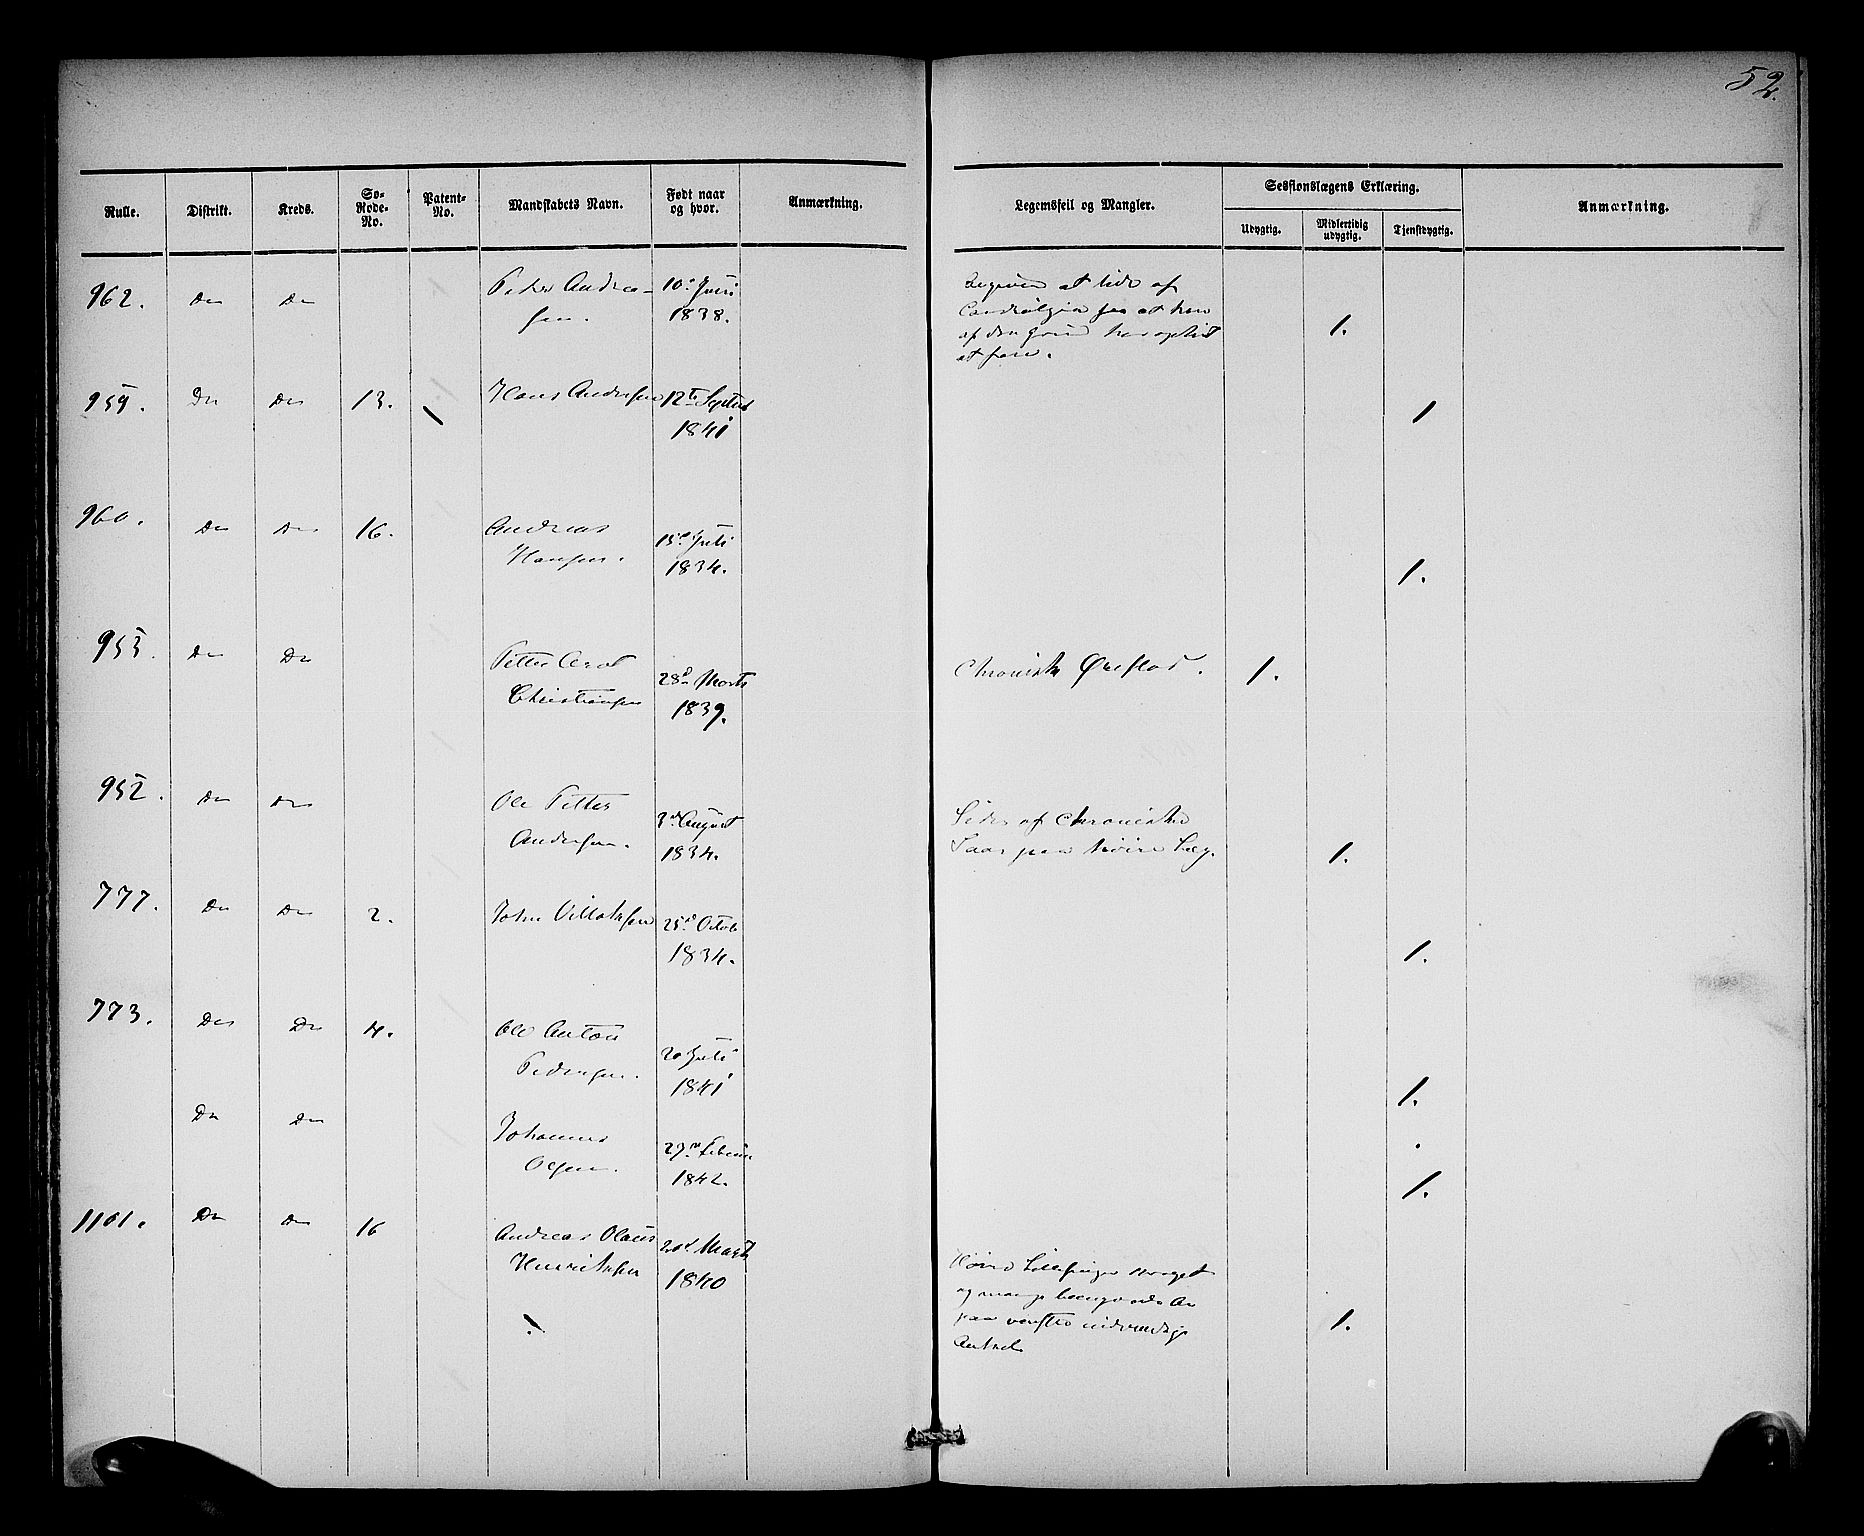 52.
Rulle.
Distrikt.
Kreds.
Sø-
Rode-
No.
Patent-
No.
Mandskabets Navn.
Født naar
og hvor.
Anmærkning.
Legemsfeil og Mangler.
Sessionslægens Erklæring.
Udygtig.
Midlertidig
udygtig.
Tjenstdygtig.
Anmærkning.
962. Do Do Peder Andrea- 10de Juni
sen. 1838.
Legeren at lide af
Cardialgia saa at han
af den Grund har ophørt
at fare.
1.
959. Do Do 13. Hans Andersen 12te Septbr
1841
1
960. Do Do 16. Andreas
Hansen. 15de Juli
1834.
1.
953. Do Do Petter Arnt
Christiansen 28de Marts
1839.
Chronisk Øreflod. 1.
952. Do Do Ole Petter
Andersen. 3de August
1834.
Lider af Chroniske
Saar paa høire Læg.
1.
777. Do Do 2. John 25de Octob
1834.
1.
773. Do Do 4. Ole Anton
Pedersen. 20 Juli
1841
1.
Do Do Johannes
Olsen. 27de Februar
1842.
1.
1101. Do Do 16 Andreas Olaus
Henriksen 20de Marts
1840
Høire Lillefinger
og mange Ar
paa venstre indvendige
Ankel
1.